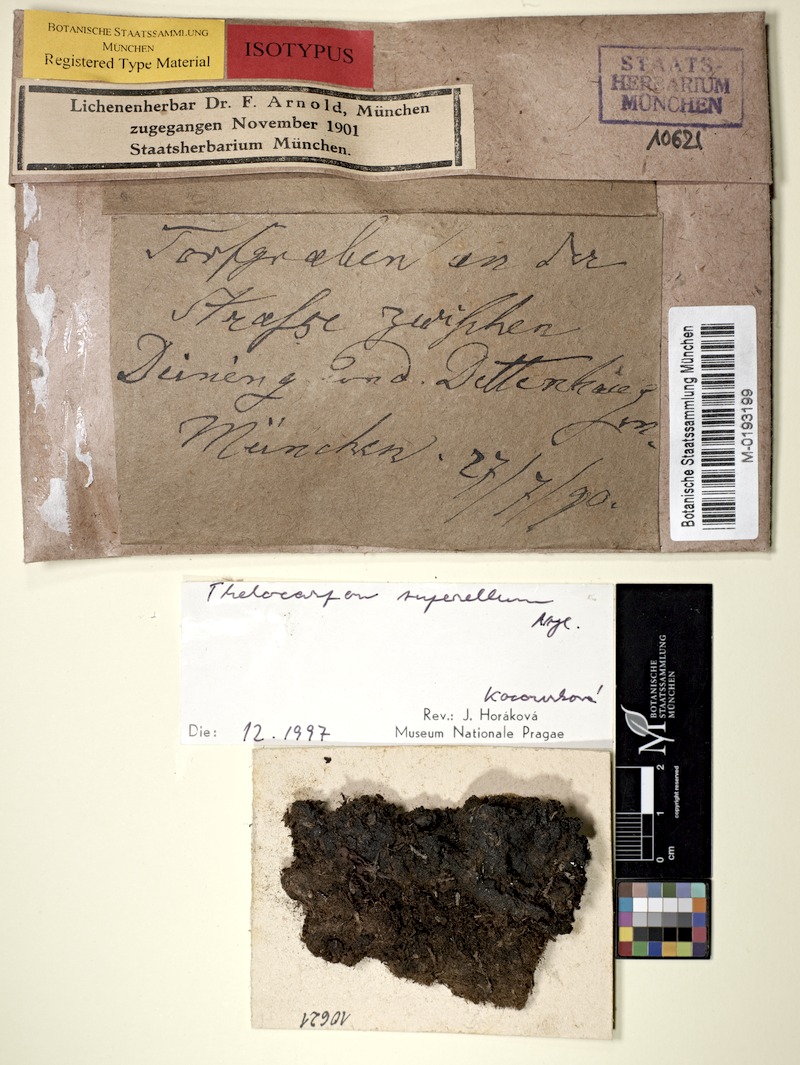 BOTANISCHE STAATSSAMMLUNG
MÜNCHEN
Registered Type Material
ISOTYPUS
Lichenenherbar Dr. F. Arnold, München
zugegangen November 1901
Staatsherbarium München.
STAATS-
HERBARIUM
MÜNCHEN
10621
Torfgraben an der
Strasse zwischen
Deining und Dettenhausen.
München. 27/7/90.
Botanische Staatssammlung München
M-0193199
Thelocarpon superellum
Nyl.
Kocourková
Rev.: J. Horáková
Die: 12.1997 Museum Nationale Pragae
BOTANISCHE
STAATSSAMMLUNG
MÜNCHEN
copyright reserved
0 1 2
cm
10621